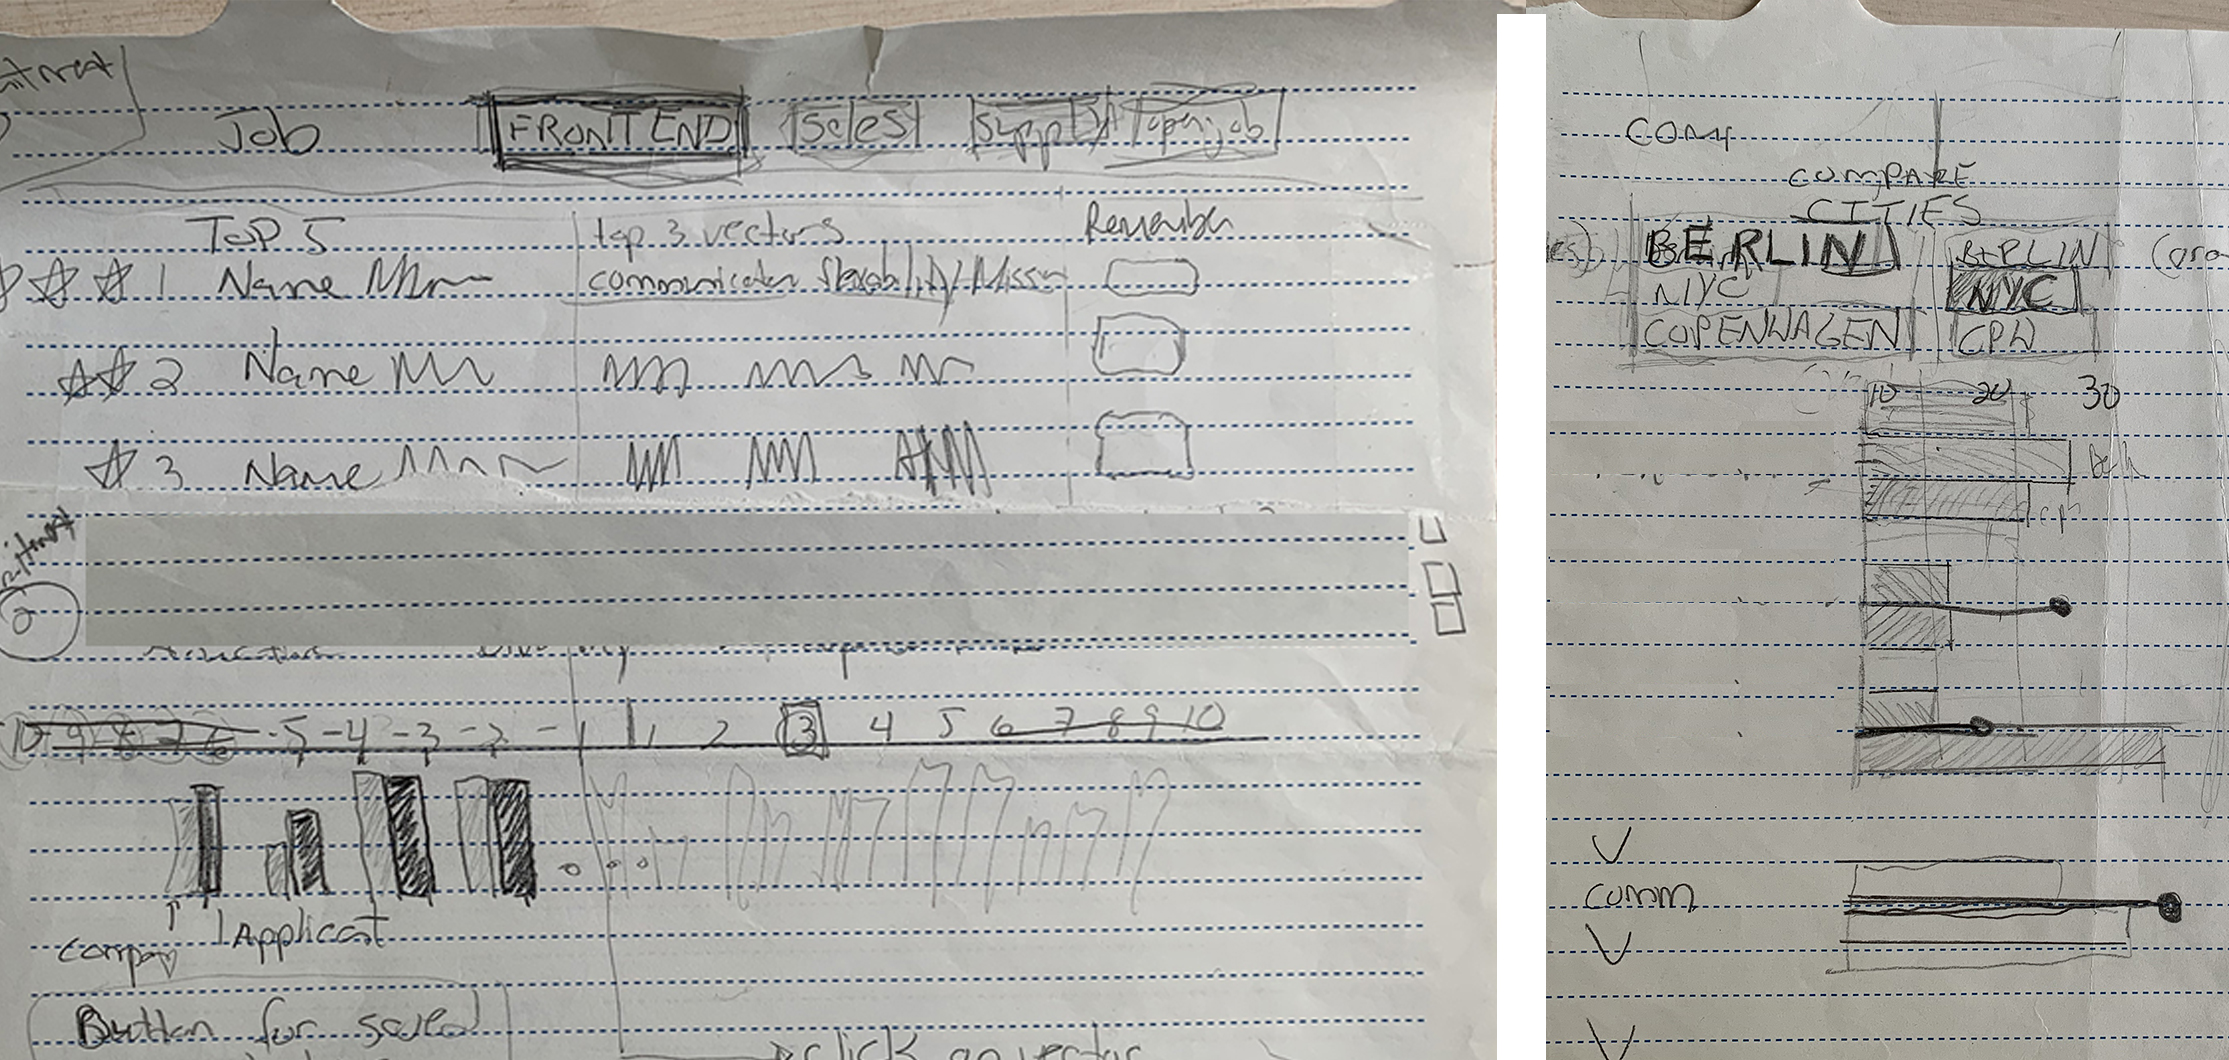 Job FRONT END Sales Support open job
TOP 5 top 3 vectors Remember
1 Name communication flexability Mission
2 Name
3 Name
10 -9 -8 -7 -6 -5 -4 -3 -2 -1 1 2 3 4 5 6 7 8 9 10
company Applicant
Button for saved
click on vector
COM
COMPARE
CITIES
BERLIN BERLIN
NYC NYC
COPENHAGEN CPH
10 20 30
Ber
cph
comm